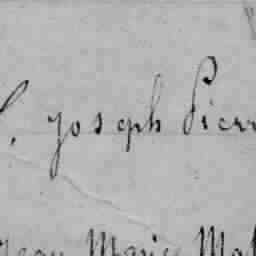 Joseph Pierr
Jean Marie Mat